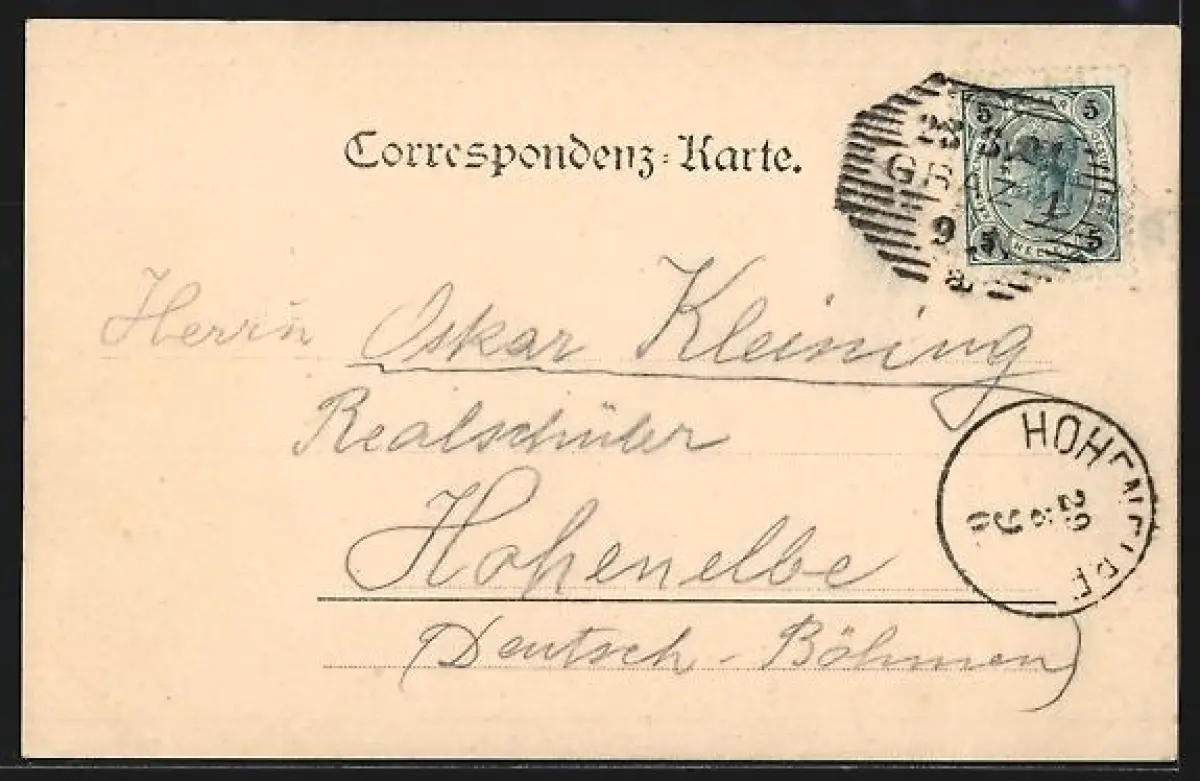 Correspondenz-Karte.
5 5
5 5
Herrn Oskar Kleining
Realschüler
Hohenelbe
(Deutsch-Böhmen)
HOHENELBE